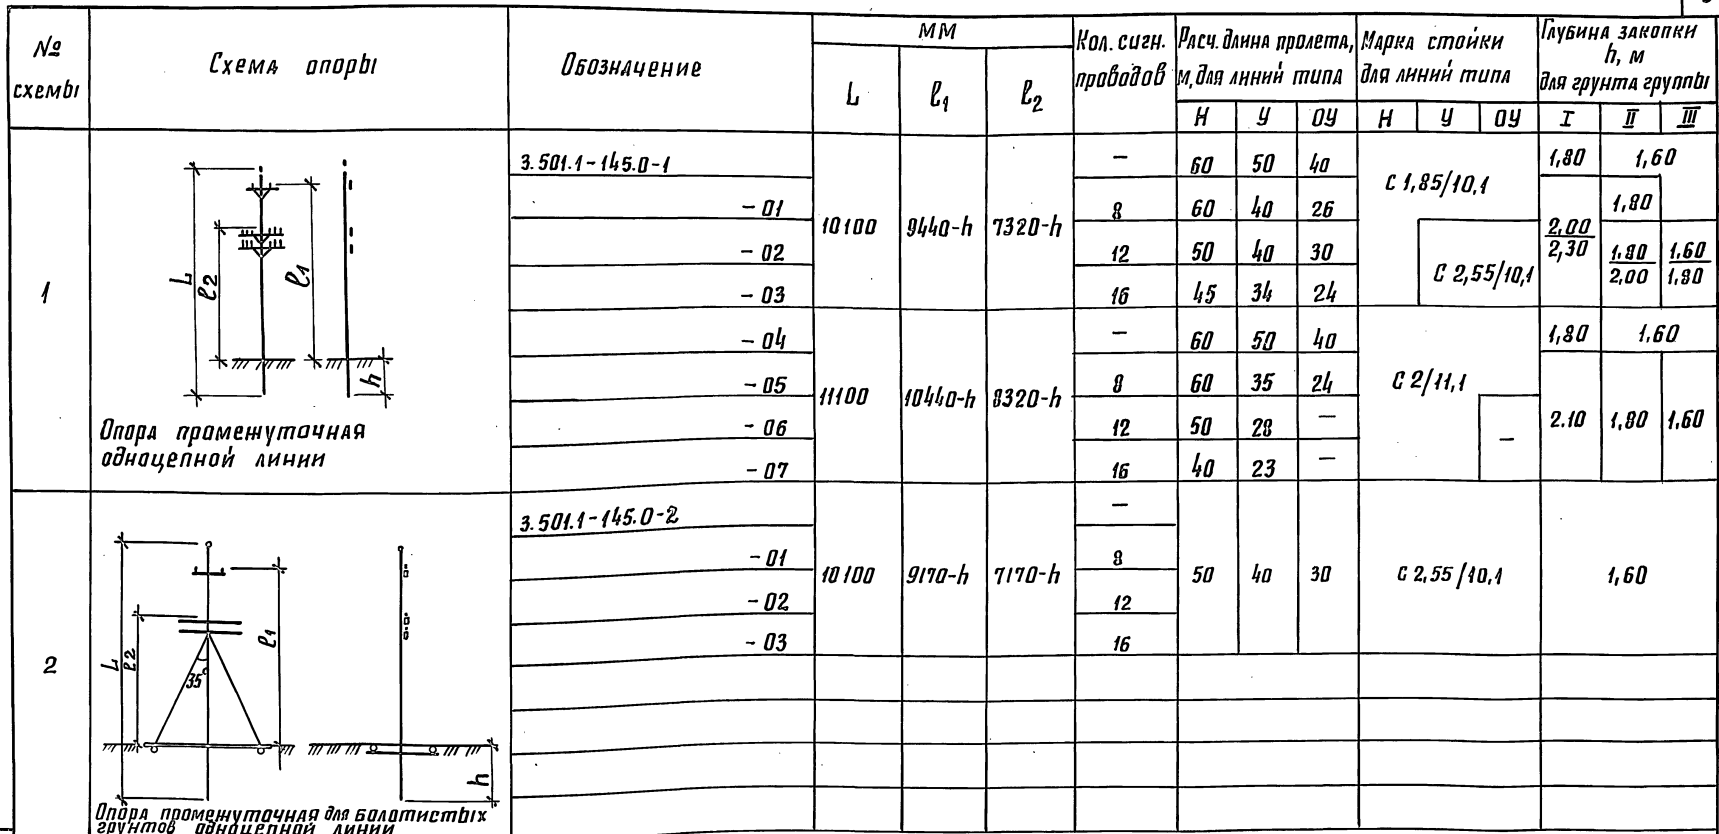 № схемы
Схема опоры
Обозначение
ММ
L
ℓ₁
ℓ₂
Кол. сигн. проводов
Расч. длина пролета, м, для линий типа
Н У ОУ
Марка стойки для линий типа
Н У ОУ
Глубина закопки h, м для грунта группы
I II III
1
L
ℓ2
ℓ1
h
Опора промежуточная
одноцепной линии
3.501.1-145.0-1 — 60 50 40 1,80 1,60
10100 9440-h 7320-h
С 1,85/10,1
- 01 8 60 40 26 1,80
2,00
2,30
- 02 12 50 40 30
1.80
2,00
1.60
1,80
С 2,55/10,1
- 03 16 45 34 24
- 04 — 60 50 40 1,80 1,60
11100 10440-h 8320-h
- 05 8 60 35 24 С 2/11,1
- 06 12 50 28 — — 2.10 1,80 1.60
- 07 16 40 23 —
2
L
ℓ2
ℓ1
35°
h
Опора промежуточная для болотистых
грунтов одноцепной линии
3.501.1-145.0-2 —
- 01 8
10100 9170-h 7170-h 50 40 30 С 2,55/10,1 1,60
- 02 12
- 03 16